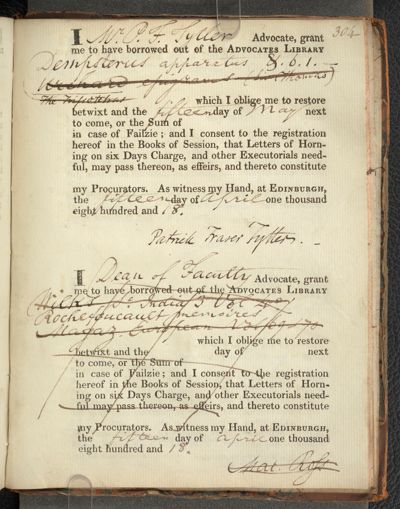 304
I Mr P. F. Tytler Advocate, grant
me to have borrowed out of the ADVOCATES LIBRARY
Dempsterus apparatus 8.6.1.—
Urchard
The
which I oblige me to restore
betwixt and the fifteen day of May next
to come, or the Sum of
in case of Failzie; and I consent to the registration
hereof in the Books of Session, that Letters of Horn-
ing on six Days Charge, and other Executorials need-
ful, may pass thereon, as effeirs, and thereto constitute
my Procurators. As witness my Hand, at EDINBURGH,
the fifteen day of April one thousand
eight hundred and 18.
Patrick Fraser Tytler. -
I Dean of Faculty Advocate, grant
me to have borrowed out of the ADVOCATES LIBRARY
India 3 Vol
Rochefoucault memoires
Magaz. European
which I oblige me to restore
betwixt and the day of next
to come, or the Sum of
in case of Failzie; and I consent to the registration
hereof in the Books of Session, that Letters of Horn-
ing on six Days Charge, and other Executorials need-
ful may pass thereon, as effeirs, and thereto constitute
my Procurators. As witness my Hand, at EDINBURGH,
the fifteen day of April one thousand
eight hundred and 18.
Mat. Ross